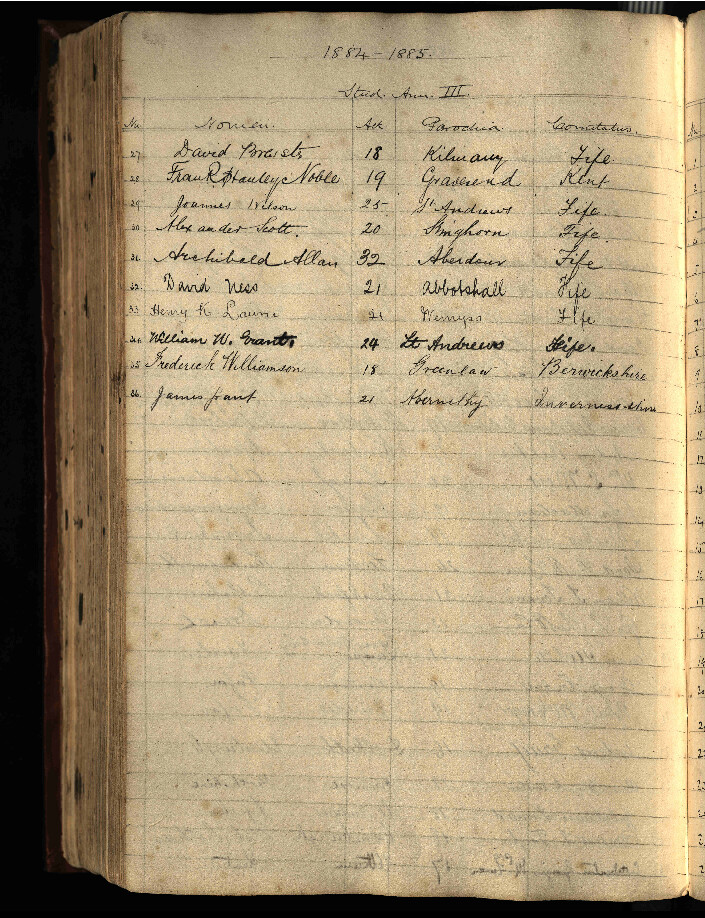 1884-1885.
Stud. Ann. III.
No. Nomen. Aet Parochia Comitatus.
27 David 18 Kilmany Fife
28 Stanley Noble 19 Gravesend Kent
29 Joannes Wilson 25 St Andrews Fife.
30 Alexander Scott. 20 Kinghorn Fife.
31 Archibald Allan 32 Aberdour Fife
32. David Ness 21 Abbotshall Fife
33 Henry K. Lawrie 21 Wemyss Fife
34 William W. Grant. 24 St Andrews Fife.
35 Frederick Williamson 18 Greenlaw Berwickshire
36. James Grant 21 Abernethy Inverness-shire